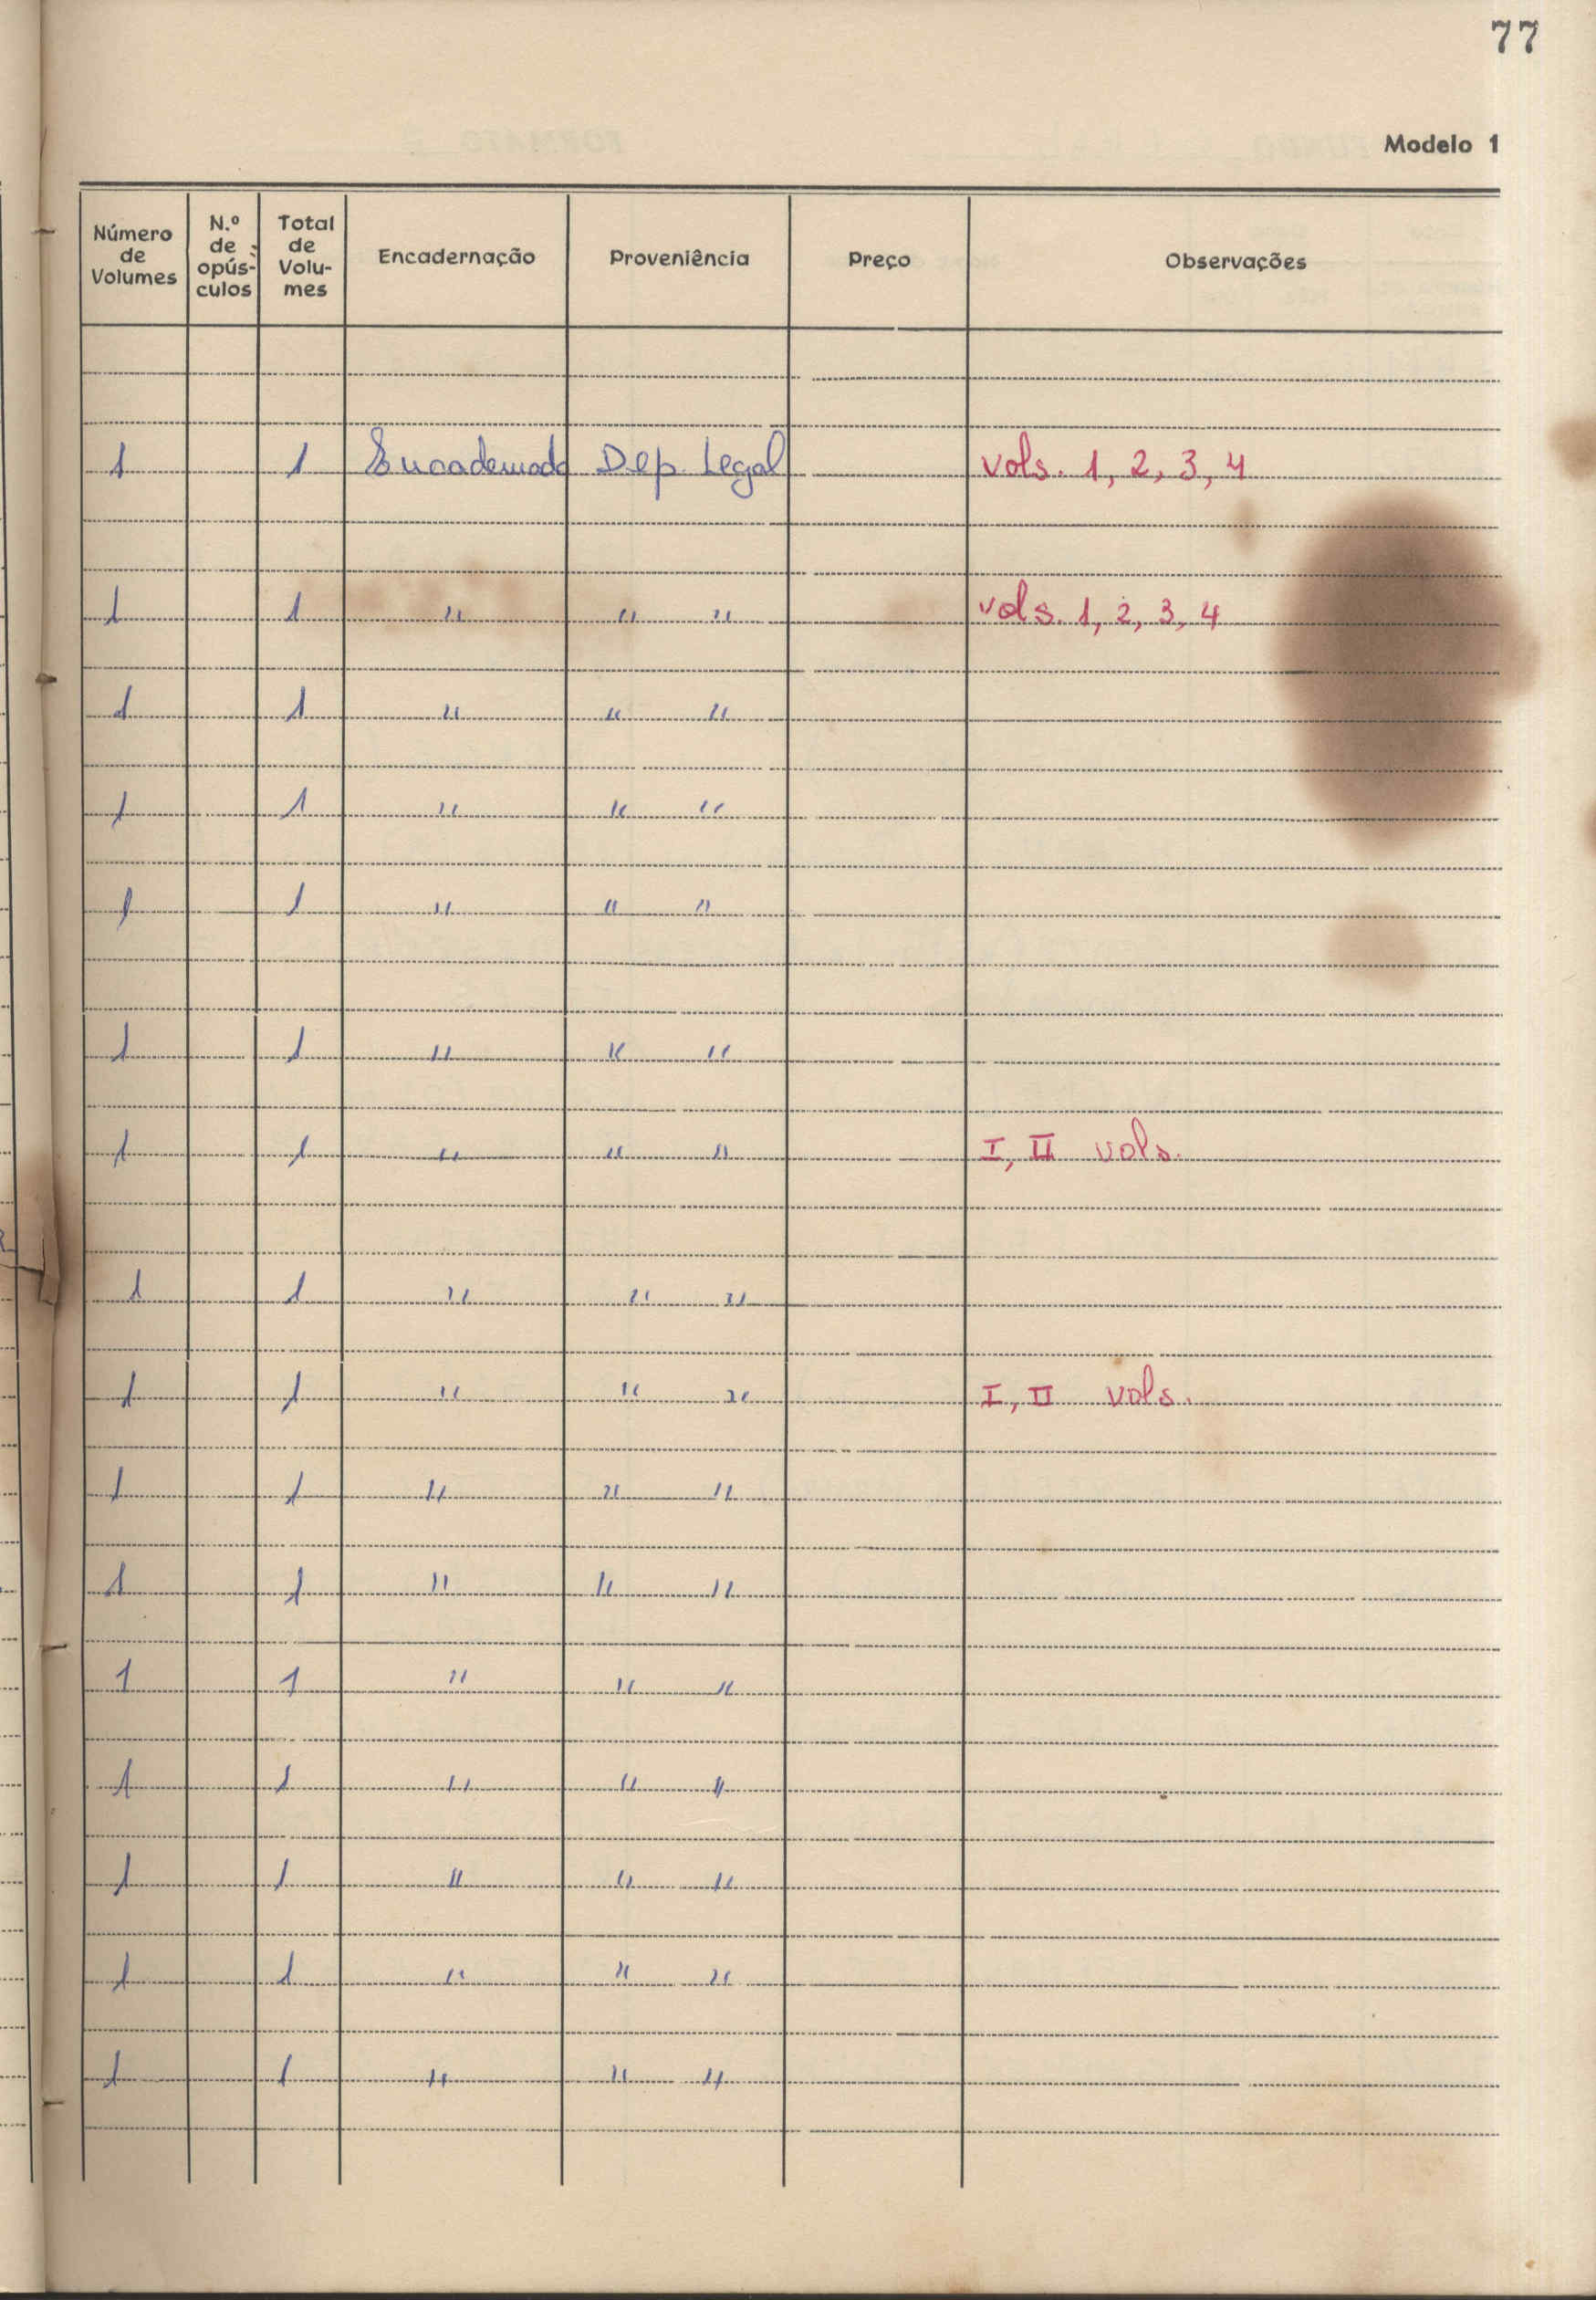 77
Modelo 1
Número de Volumes N.º de opús-culos Total de Volu-mes Encadernação Proveniência Preço Observações
1 1 Encadernado Dep. Legal vols. 1, 2, 3, 4
1 1 " " " vols. 1, 2, 3, 4
1 1 " " "
1 1 " " "
1 1 " " "
1 1 " " "
1 1 " " " I, II vols.
1 1 " " "
1 1 " " " I, II vols.
1 1 " " "
1 1 " " "
1 1 " " "
1 1 " " "
1 1 " " "
1 1 " " "
1 1 " " "